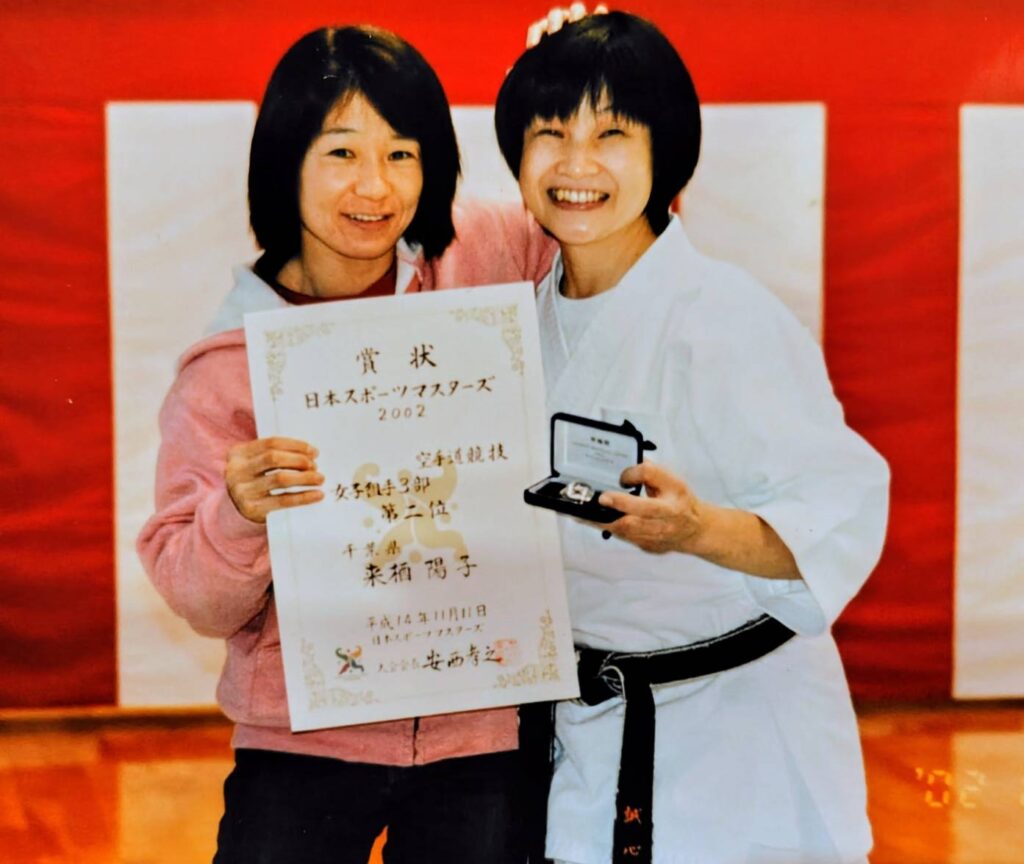 賞状
日本スポーツマスターズ
2002
空手道競技
女子組手3部
第二位
千葉県
来栖陽子
平成14年11月11日
日本スポーツマスターズ
大会会長 安西孝之
誠心
'02